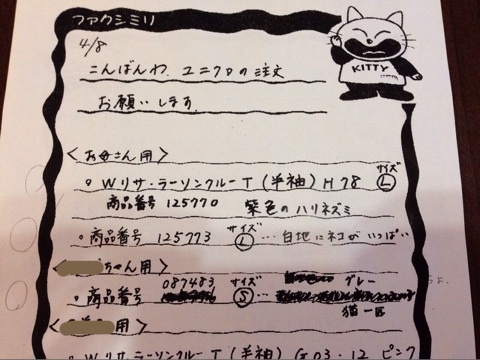 ファクシミリ
KITTY
4/8
こんばんわ、ユニクロの注文
お願いします。
<お母さん用>
。Wリサ・ラーソンクルーT(半袖)H78 サイズ Ⓛ
商品番号 125770 紫色のハリネズミ
。商品番号 125773 サイズ Ⓛ…白地にネコがいっぱい
< ちゃん用>
。商品番号 087483 サイズ Ⓢ… グレー
猫一匹
< 用>
。Wリサ・ラーソンクルーT(半袖)G03.12 ピンク